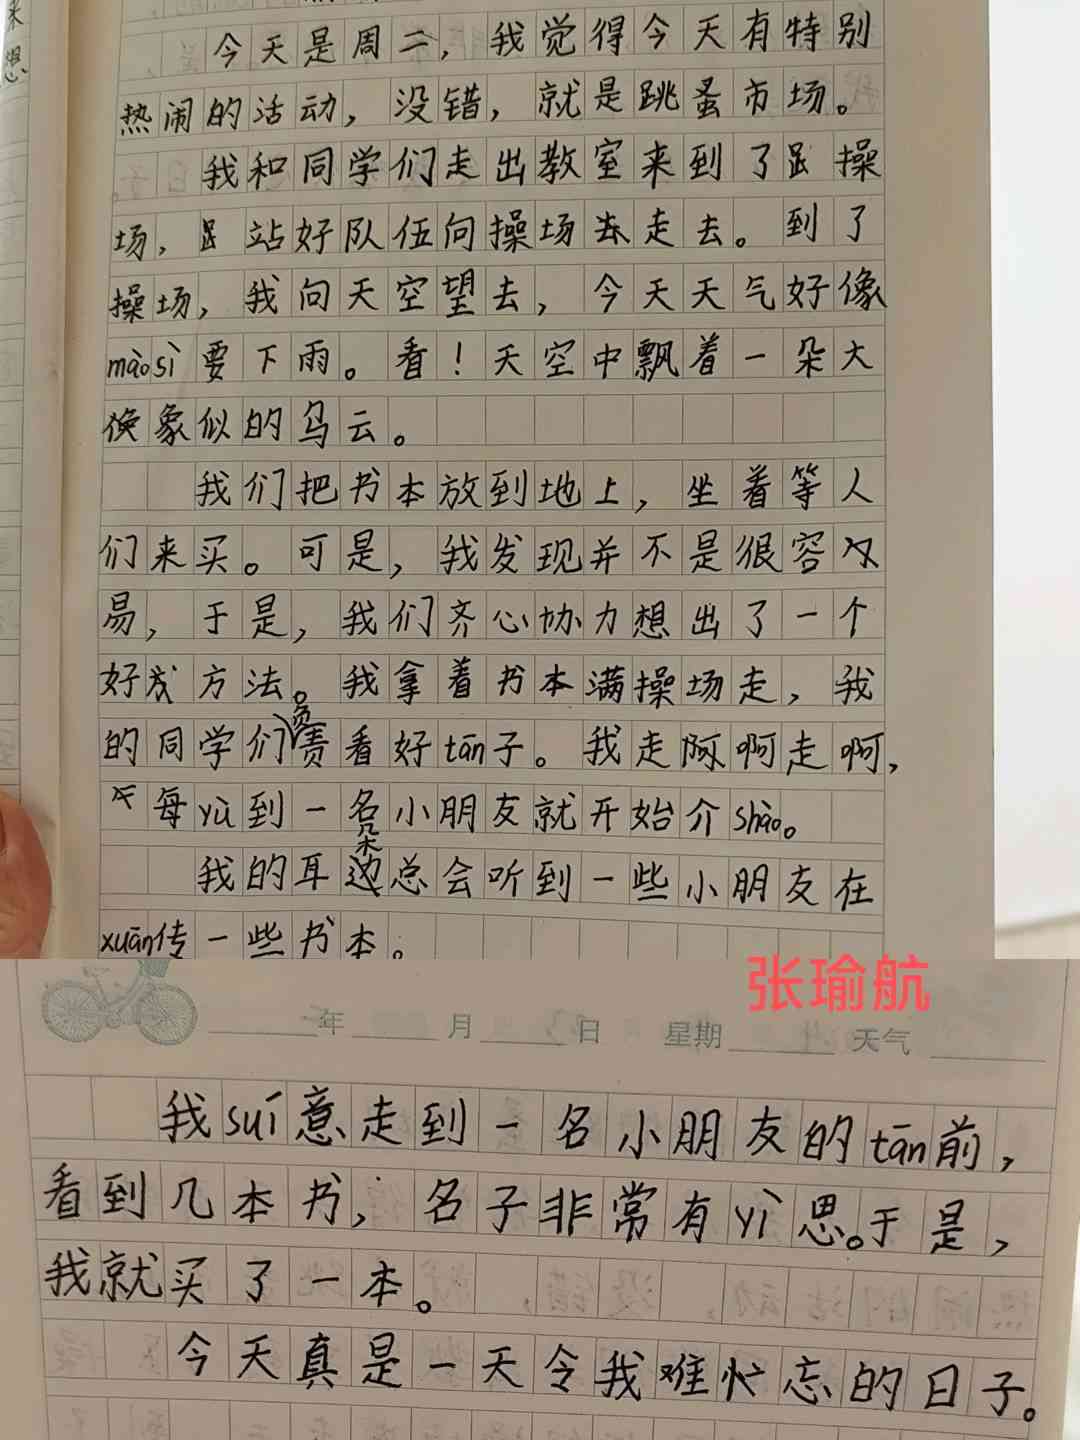 今天是周二，我觉得今天有特别
热闹的活动，没错，就是跳蚤市场。
我和同学们走出教室来到了操
场，站好队伍向操场走去。到了
操场，我向天空望去，今天天气好像
màosì要下雨。看！天空中飘着一朵大
象似的乌云。
我们把书本放到地上，坐着等人
们来买。可是，我发现并不是很容
易，于是，我们齐心协力想出了一个
好方法。我拿着书本满操场走，我
的同学们负责看好tān子。我走啊走啊，
每yù到一名小朋友就开始介shào。
我的耳朵边总会听到一些小朋友在
xuān传一些书本。
张瑜航
年 月 日 星期 天气
我suí意走到一名小朋友的tān前，
看到几本书，名子非常有yì思。于是，
我就买了一本。
今天真是一天令我难忘的日子。